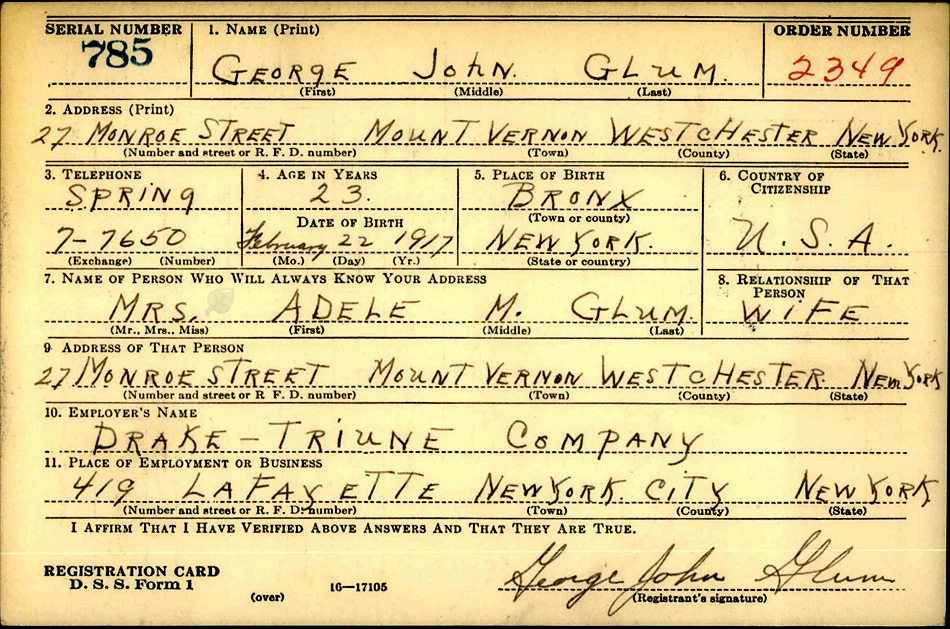 SERIAL NUMBER 1. NAME (Print) ORDER NUMBER
785 GEORGE JOHN. GLUM. 2349
(First) (Middle) (Last)
2. ADDRESS (Print)
27 MONROE STREET MOUNT VERNON WESTCHESTER NEW YORK.
(Number and street or R. F. D. number) (Town) (County) (State)
3. TELEPHONE 4. AGE IN YEARS 5. PLACE OF BIRTH 6. COUNTRY OF CITIZENSHIP
SPRING 23. BRONX
DATE OF BIRTH (Town or county)
7-7650 February 22 1917 NEW YORK. U.S.A.
(Exchange) (Number) (Mo.) (Day) (Yr.) (State or country)
7. NAME OF PERSON WHO WILL ALWAYS KNOW YOUR ADDRESS 8. RELATIONSHIP OF THAT PERSON
MRS. ADELE M. GLUM. WIFE
(Mr., Mrs., Miss) (First) (Middle) (Last)
9 ADDRESS OF THAT PERSON
27 MONROE STREET MOUNT VERNON WESTCHESTER NEW YORK
(Number and street or R. F. D. number) (Town) (County) (State)
10. EMPLOYER'S NAME
DRAKE - TRIUNE COMPANY
11. PLACE OF EMPLOYMENT OR BUSINESS
419 LAFAYETTE NEW YORK. CITY NEW YORK
(Number and street or R. F. D. number) (Town) (County) (State)
I AFFIRM THAT I HAVE VERIFIED ABOVE ANSWERS AND THAT THEY ARE TRUE.
George John Glum
REGISTRATION CARD
D. S. S. Form 1 16—17105
(over) (Registrant's signature)